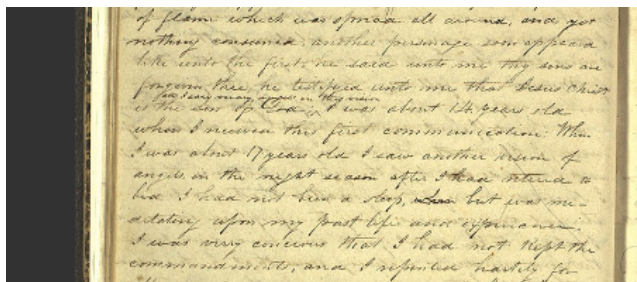 of flame which was spread all around, and yet
nothing consumed, another personage soon appeard
like unto the first, he said unto me thy sins are
forgiven thee, he testifyed unto me that Jesus Christ
and I saw many angels in this vision
is the son of God; I was about 14 years old
when I received this first communication; When
I was about 17 years old I saw another vision of
angels, in the night season after I had retired to
bed I had not been a sleep, but was me-
ditating upon my past life and experience.
I was very concious that I had not kept the
commandments, and I repented hartily for